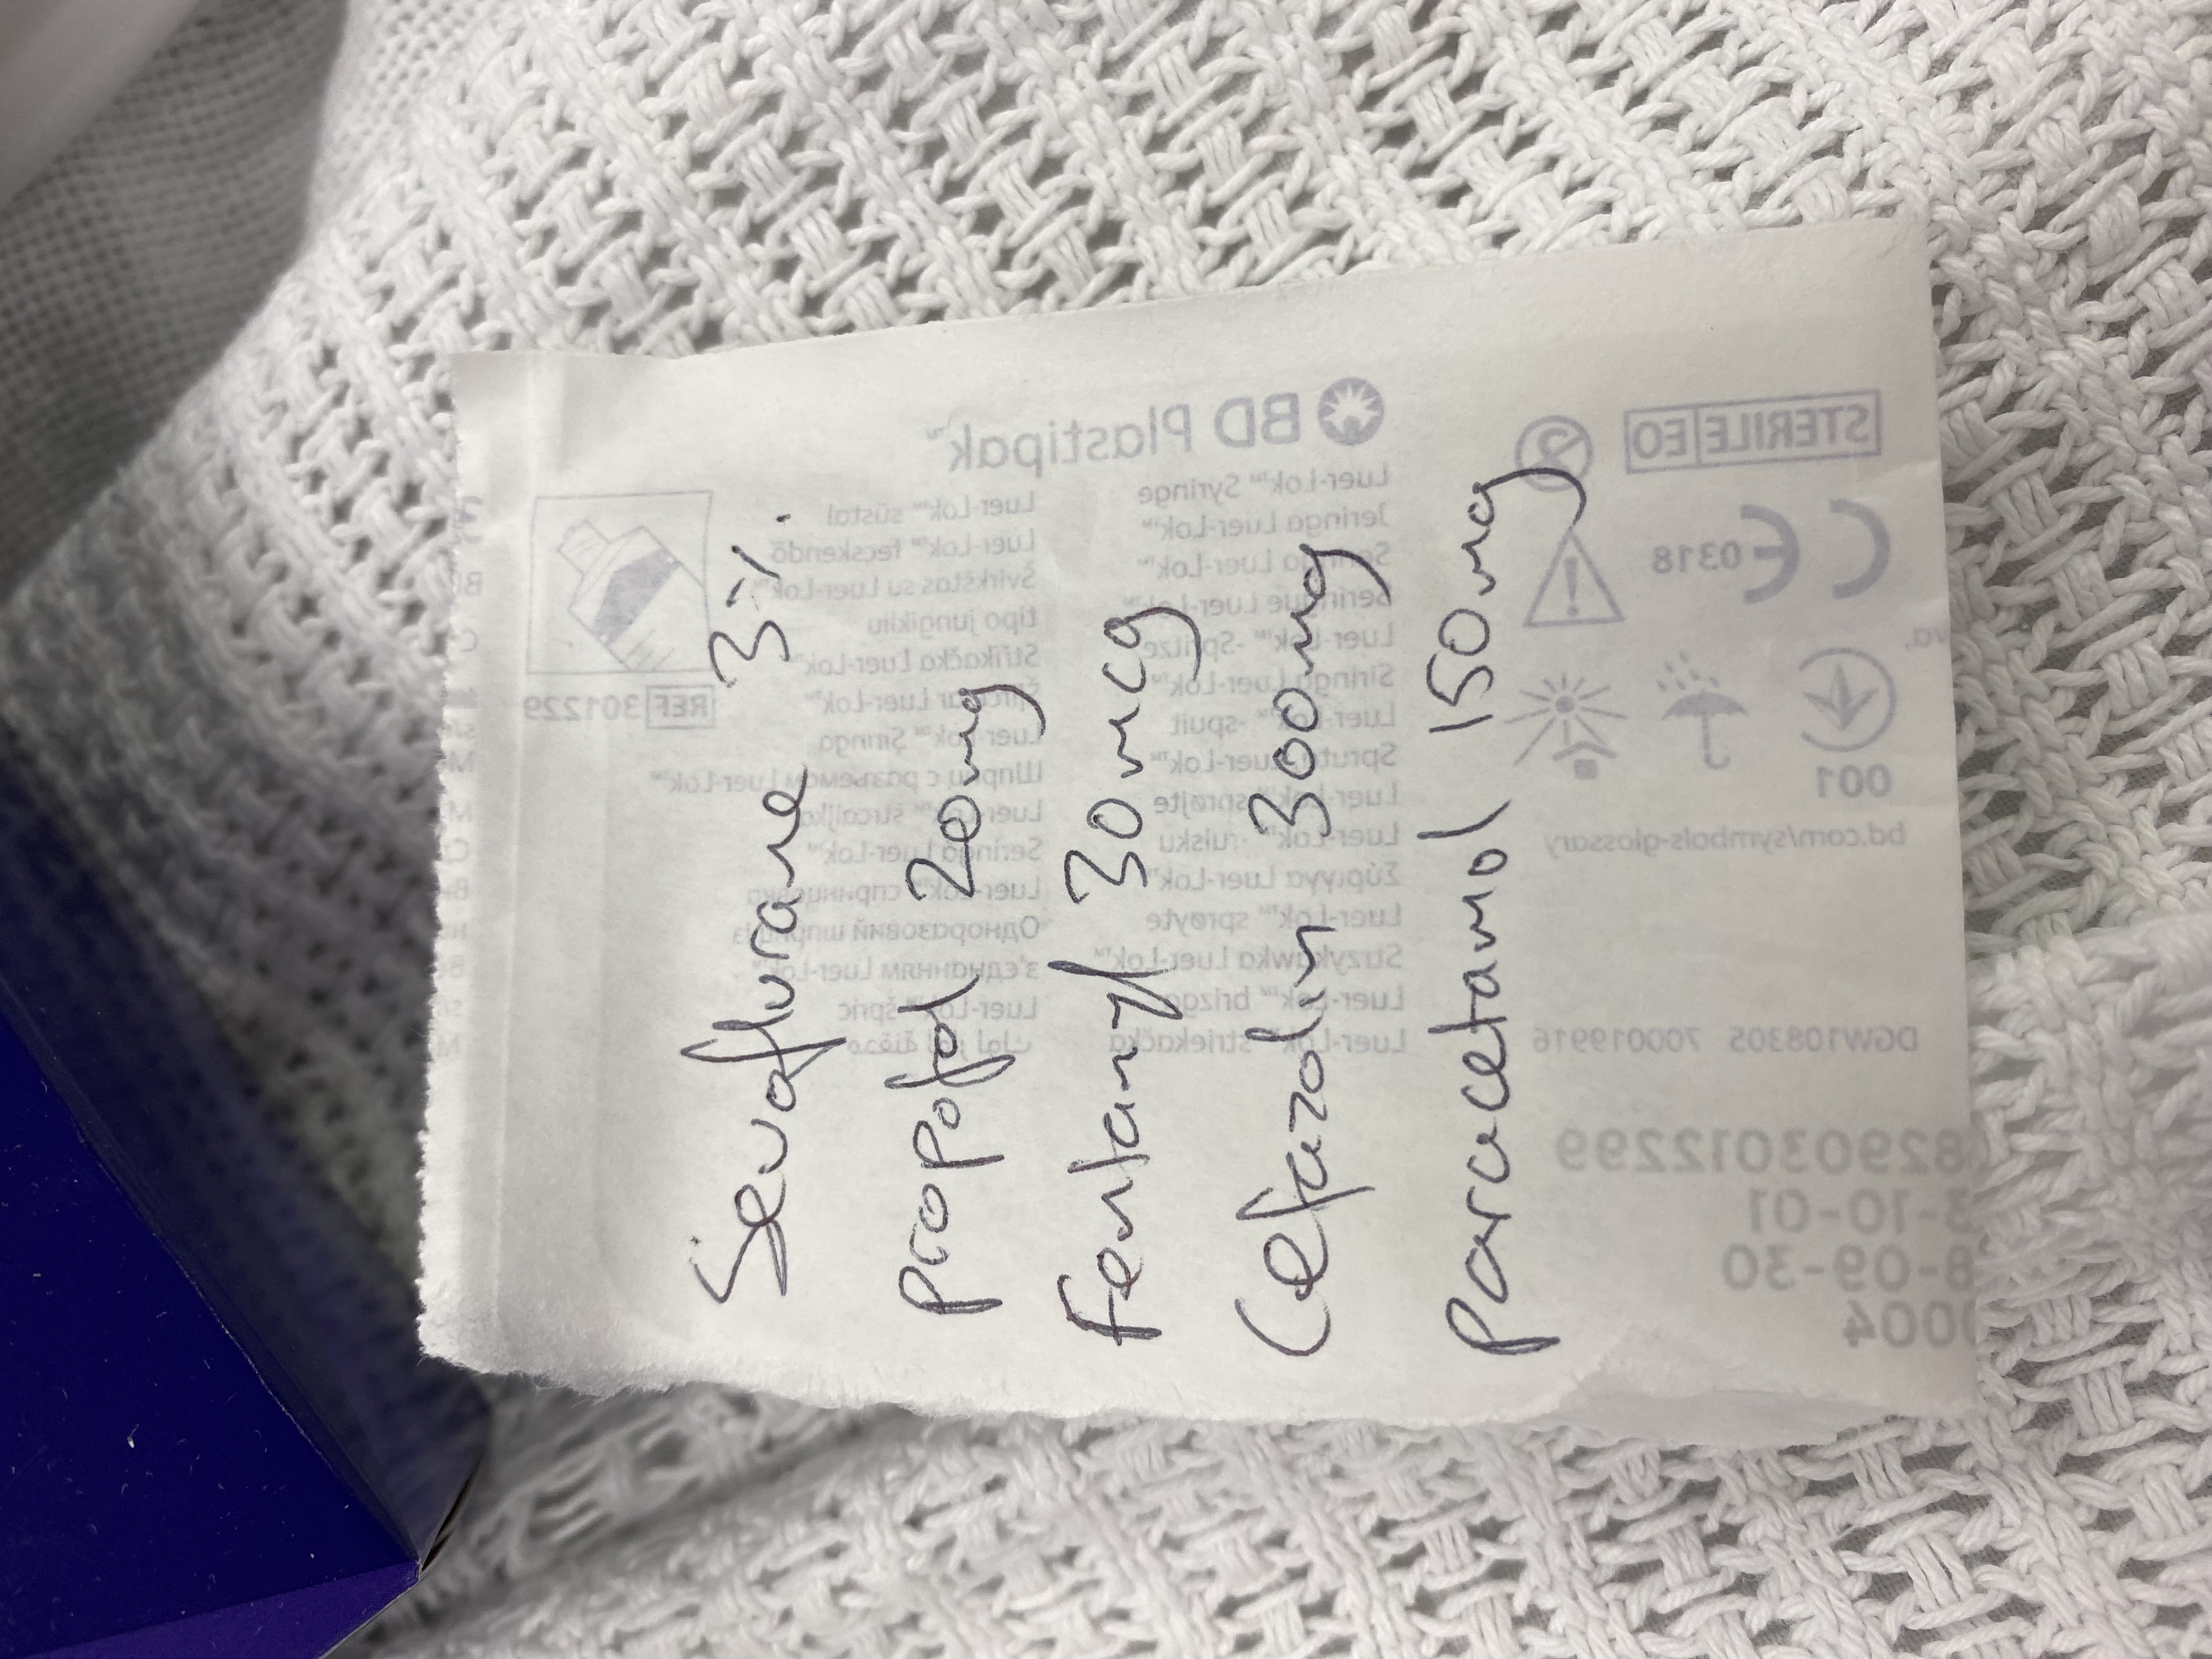 Sevoflurane 3%
propofol 20mg
Fentanyl 30mcg
Cefazolin 300mg
Paracetamol 150mg
BD Plastipak™
Luer-Lok™ Syringe
Jeringa Luer-Lok™
Seringue Luer-Lok™
Luer-Lok™ -Spritze
Siringa Luer-Lok™
Luer-Lok™ -spuit
Spruta Luer-Lok™
Luer-Lok™ sprøjte
Luer-Lok™ -ruisku
Σύριγγα Luer-Lok™
Luer-Lok™ sprøyte
Strzykawka Luer-Lok™
Luer-Lok™ brizga
Luer-Lok™ striekačka
Luer-Lok™ süstal
Luer-Lok™ fecskendő
Švirkštas su Luer-Lok™
tipo jungikliu
Stříkačka Luer-Lok™
Luer-Lok™ Siringa
Шприц с разъемом Luer-Lok™
Luer-Lok™ štrcaljka
Seringa Luer-Lok™
Luer-Lok™ спринцовка
Одноразовий шприц із
з'єднанням Luer-Lok™
Luer-Lok™ špric
REF 301229
STERILE EO
2
CE 0318
001
bd.com/symbols-glossary
DGW108305 700019916
82903012299
3-10-01
8-09-30
0004